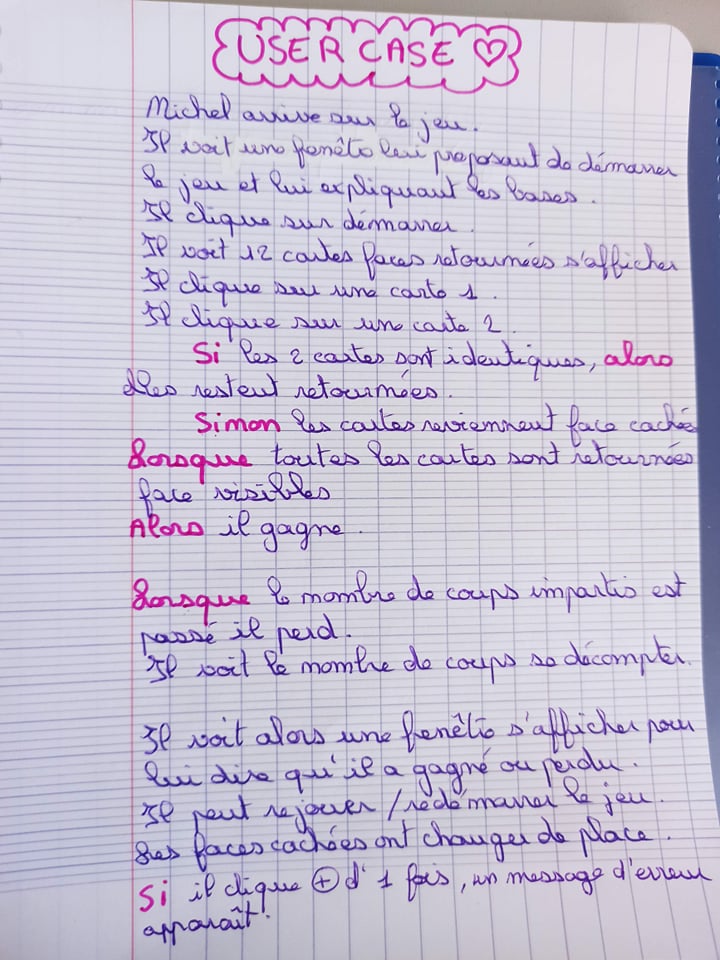 USER CASE ♡
Michel arrive sur le jeu.
Il voit une fenêtre lui proposant de démarrer
le jeu et lui expliquant les bases.
Il clique sur démarrer.
Il voit 12 cartes faces retournées s'afficher
Il clique sur une carte 1.
Il clique sur une carte 2.
Si les 2 cartes sont identiques, alors
elles restent retournées.
Sinon les cartes reviennent face cachée
Lorsque toutes les cartes sont retournées
face visibles
Alors il gagne.
Lorsque le nombre de coups impartis est
passé il perd.
Il voit le nombre de coups se décompter.
Il voit alors une fenêtre s'afficher pour
lui dire qu'il a gagné ou perdu.
Il peut rejouer / redémarrer le jeu.
Les faces cachées ont changer de place.
Si il clique + d'1 fois, un message d'erreur
apparaît!